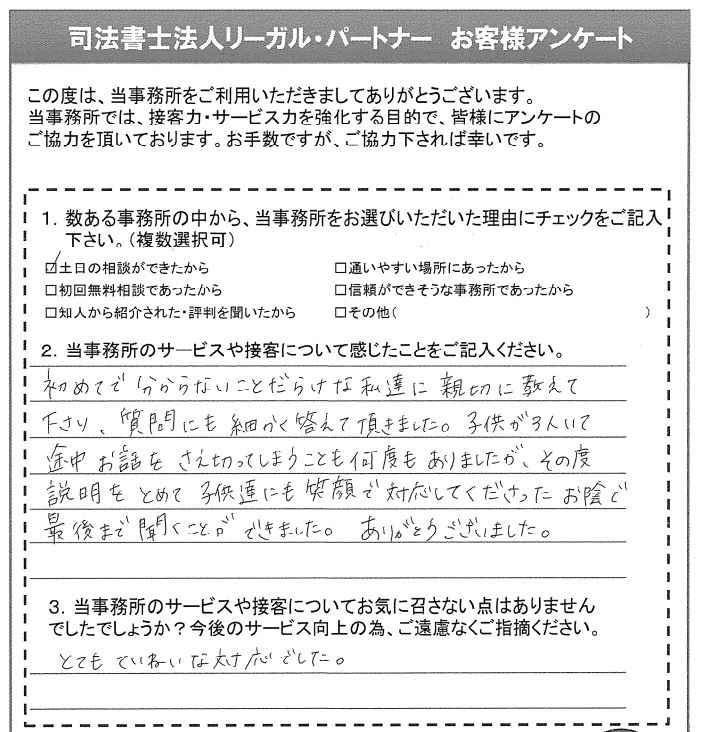 司法書士法人リーガル・パートナー お客様アンケート
この度は、当事務所をご利用いただきましてありがとうございます。
当事務所では、接客力・サービス力を強化する目的で、皆様にアンケートの
ご協力を頂いております。お手数ですが、ご協力下されば幸いです。
1. 数ある事務所の中から、当事務所をお選びいただいた理由にチェックをご記入
下さい。(複数選択可)
☑土日の相談ができたから □通いやすい場所にあったから
□初回無料相談であったから □信頼ができそうな事務所であったから
□知人から紹介された・評判を聞いたから □その他( )
2. 当事務所のサービスや接客について感じたことをご記入ください。
初めてで分からないことだらけな私達に親切に教えて
下さり、質問にも細かく答えて頂きました。子供が3人いて
途中お話をさえ切ってしまうことも何度もありましたが、その度
説明をとめて子供達にも笑顔で対応してくださったお陰で
最後まで聞くことができました。ありがとうございました。
3. 当事務所のサービスや接客についてお気に召さない点はありません
でしたでしょうか?今後のサービス向上の為、ご遠慮なくご指摘ください。
とてもていねいな対応でした。